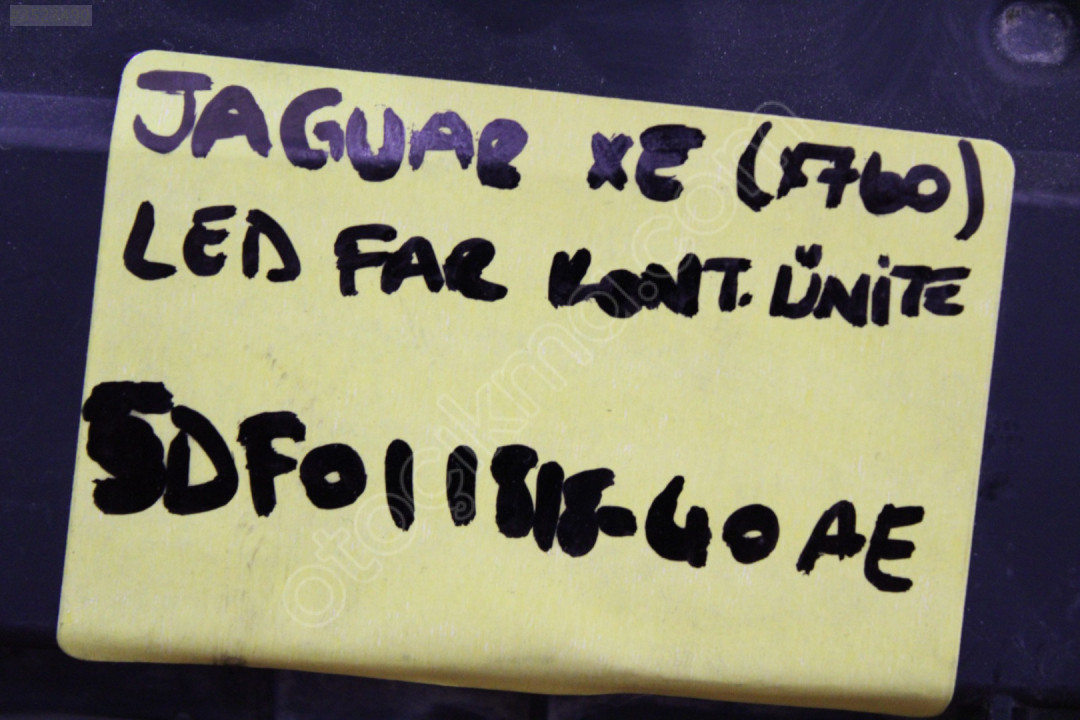 JAGUAR XE (X760)
LED FAR KONT. ÜNİTE
5DF011818-40 AE
otocikma.com